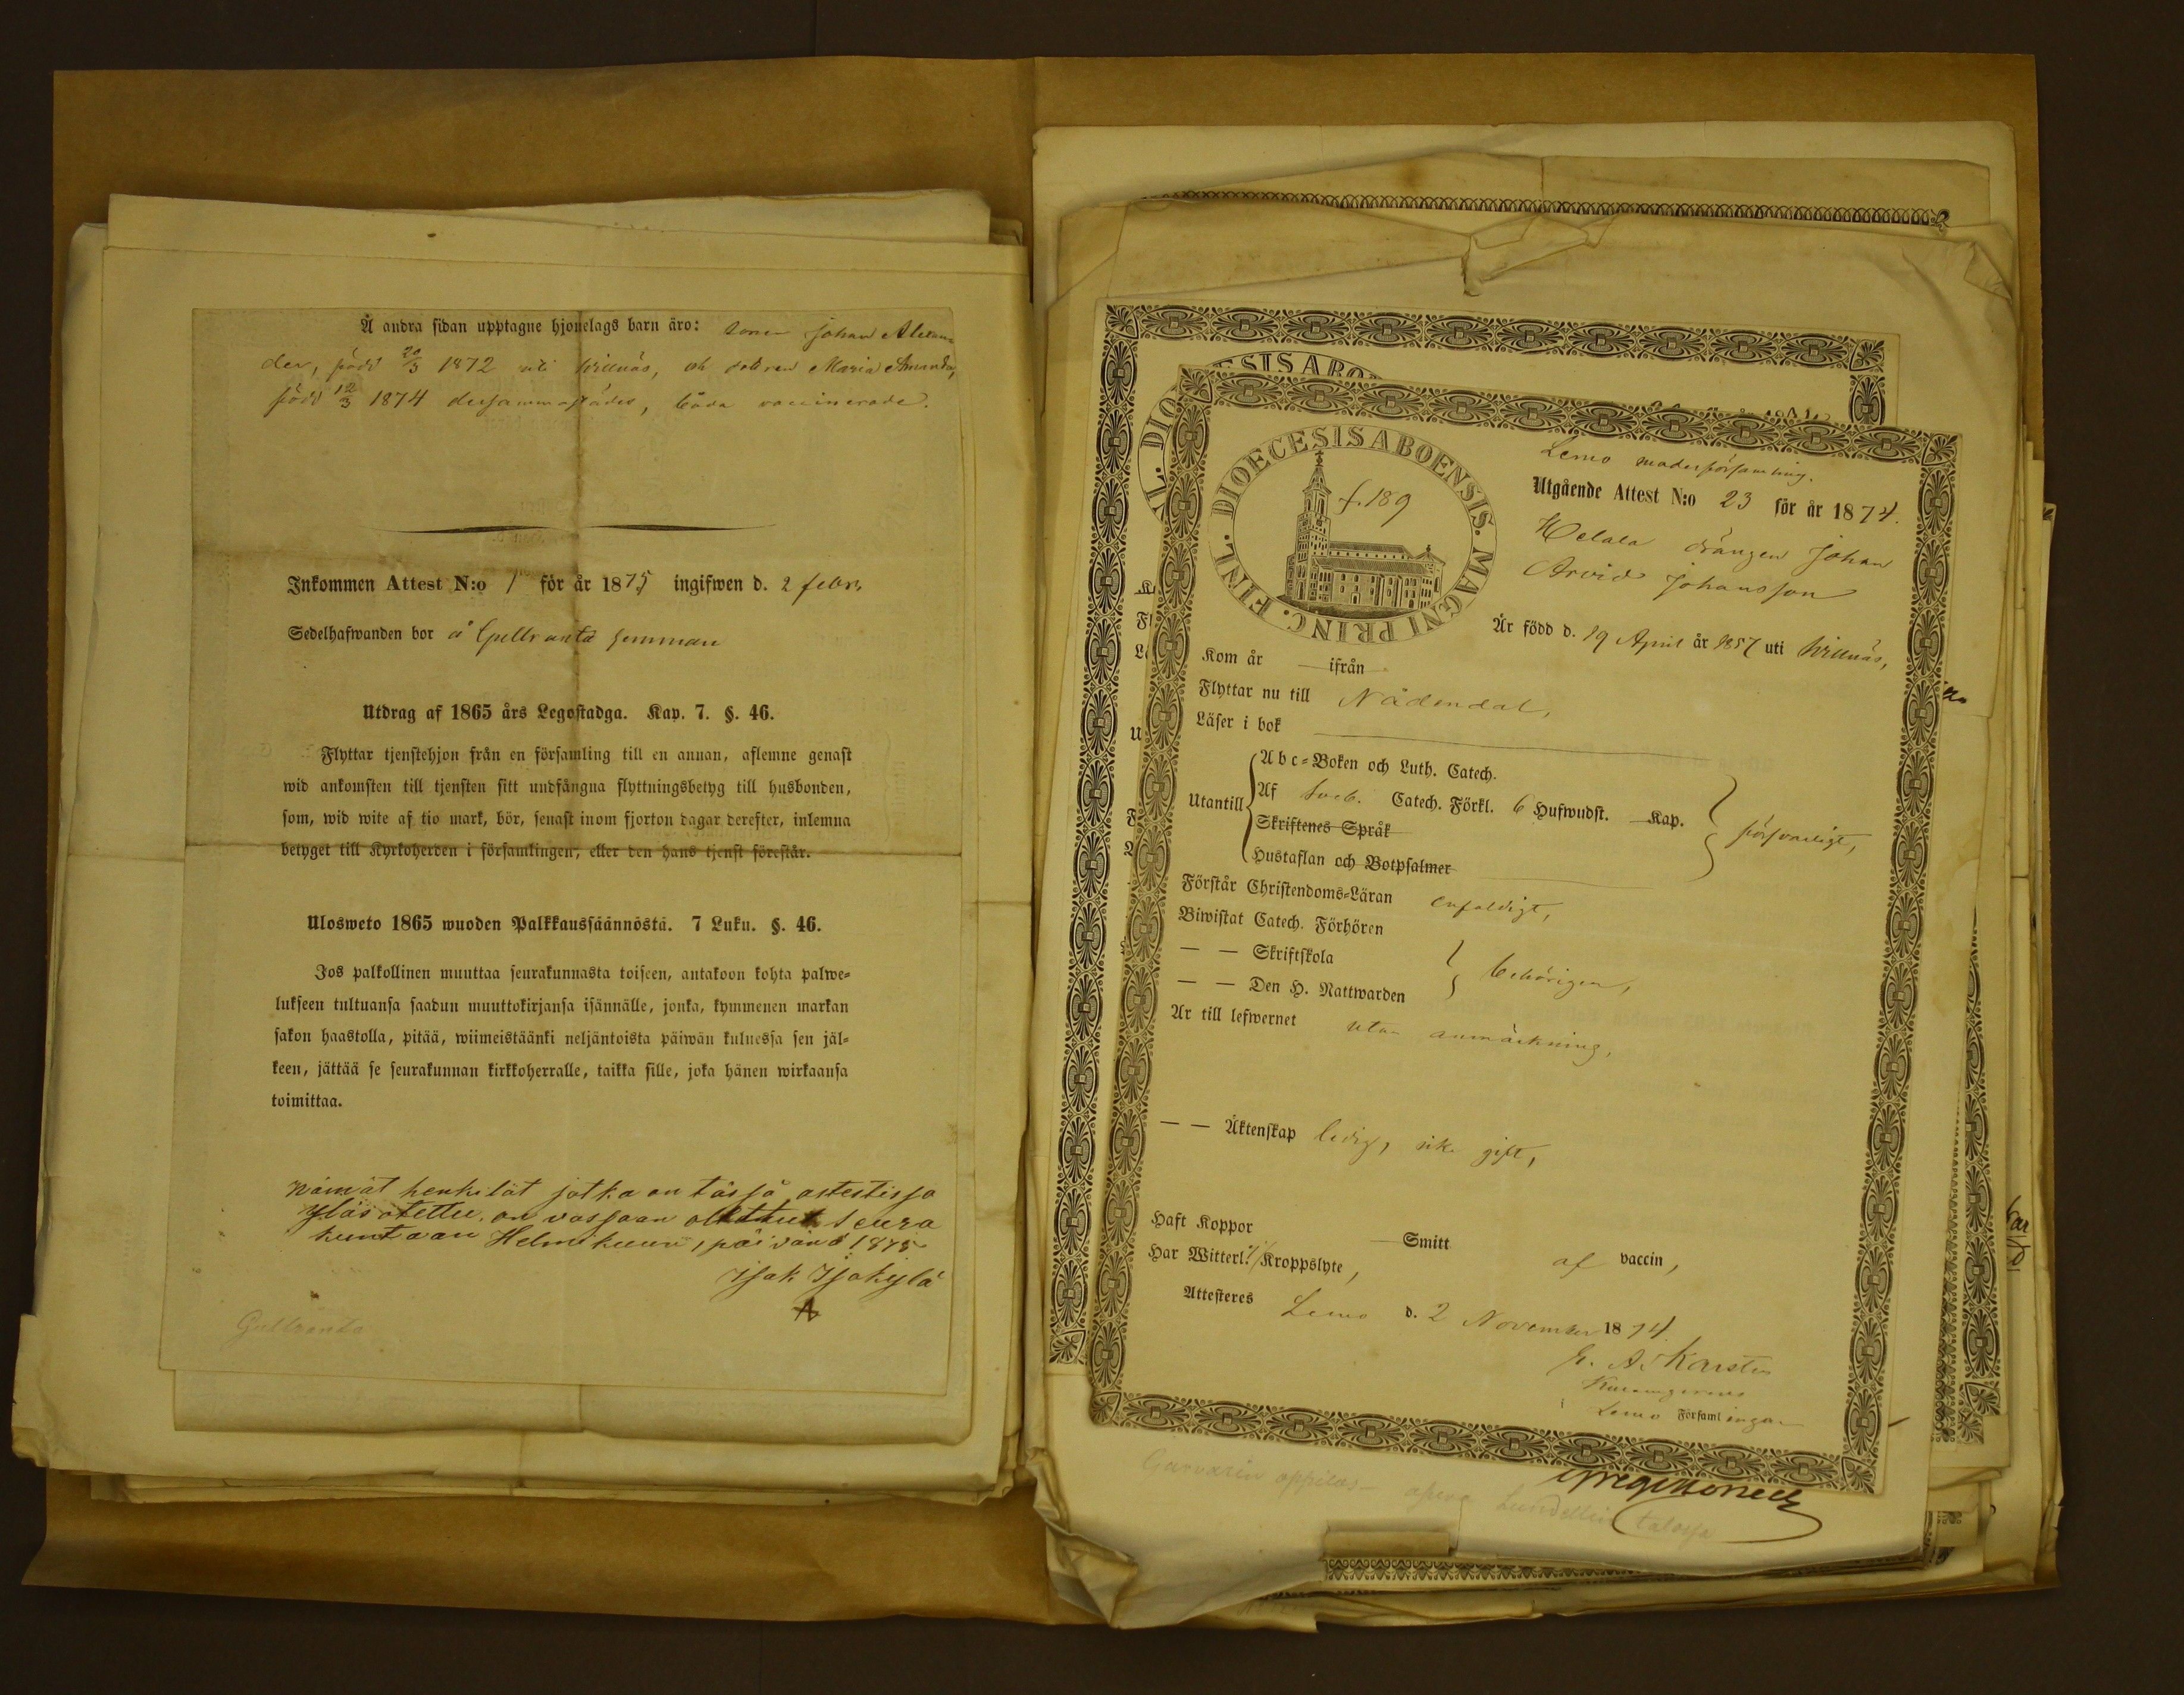 Å andra sidan upptagne hjonelags barn äro: sonen Johan Alexan
der, född 20/3 1872 uti Willnäs, och dottren Maria Amanda,
född 12/3 1874 dersammastädes, båda vaccinerade.
Inkommen Attest N:o 1 för år 1875 ingifwen d. 2 febr.
Sedelhafwanden bor å Gullranta hemman
Utdrag af 1865 års Legostadga. Kap. 7. §. 46.
Flyttar tjenstehjon från en församling till en annan, aflemne genast
wid ankomsten till tjensten sitt undfångna flyttningsbetyg till husbonden,
som, wid wite af tio mark, bör, senast inom fjorton dagar derefter, inlemna
betyget till Kyrkoherden i församlingen, eller den hans tjenst förestår.
Ulosweto 1865 wuoden Palkkaussäännöstä. 7 Luku. §. 46.
Jos palkollinen muuttaa seurakunnasta toiseen, antakoon kohta palwe=
lukseen tultuansa saadun muuttokirjansa isännälle, jonka, kymmenen markan
sakon haastolla, pitää, wiimeistäänki neljäntoista päiwän kuluessa sen jäl=
keen, jättää se seurakunnan kirkkoherralle, taikka sille, joka hänen wirkaansa
toimittaa.
Nämät henkilöt jotka on tässä astestissa
ylösotettu, on vassaan otettu seura
kuntaan Helmikuun 1 päivänä 1875
Isak Isokylä
Gullranta
DIOECESIS ABOENSIS. MAGNI PRINC. FINL.
f. 189
Lemo moderförsamling.
Utgående Attest N:o 23 för år 1874.
Helala drängen Johan
Arvid Johansson
Är född d. 19 April år 1857 uti Willnäs,
Kom år — ifrån
Flyttar nu till Nådendal,
Läser i bok
Utantill
Abc=Boken och Luth. Catech.
Af Sveb. Catech. Förkl. 6 Hufwudst. Kap.
Skriftenes Språk
försvarligt,
Hustaflan och Botpsalmer
Förstår Christendoms=Läran enfaldigt,
Biwistat Catech. Förhören
— — Skriftskola
behörigen,
— — Den H. Nattwarden
Är till lefwernet utan anmärkning,
— — Äktenskap ledig, icke gift,
Haft Koppor — Smitt af vaccin,
Har Witterl. Kroppslyte,
Attesteres Lemo d. 2 November 1874.
K. A. Karsten
Lemo Församlingar
oppilas — Lundellin talossa